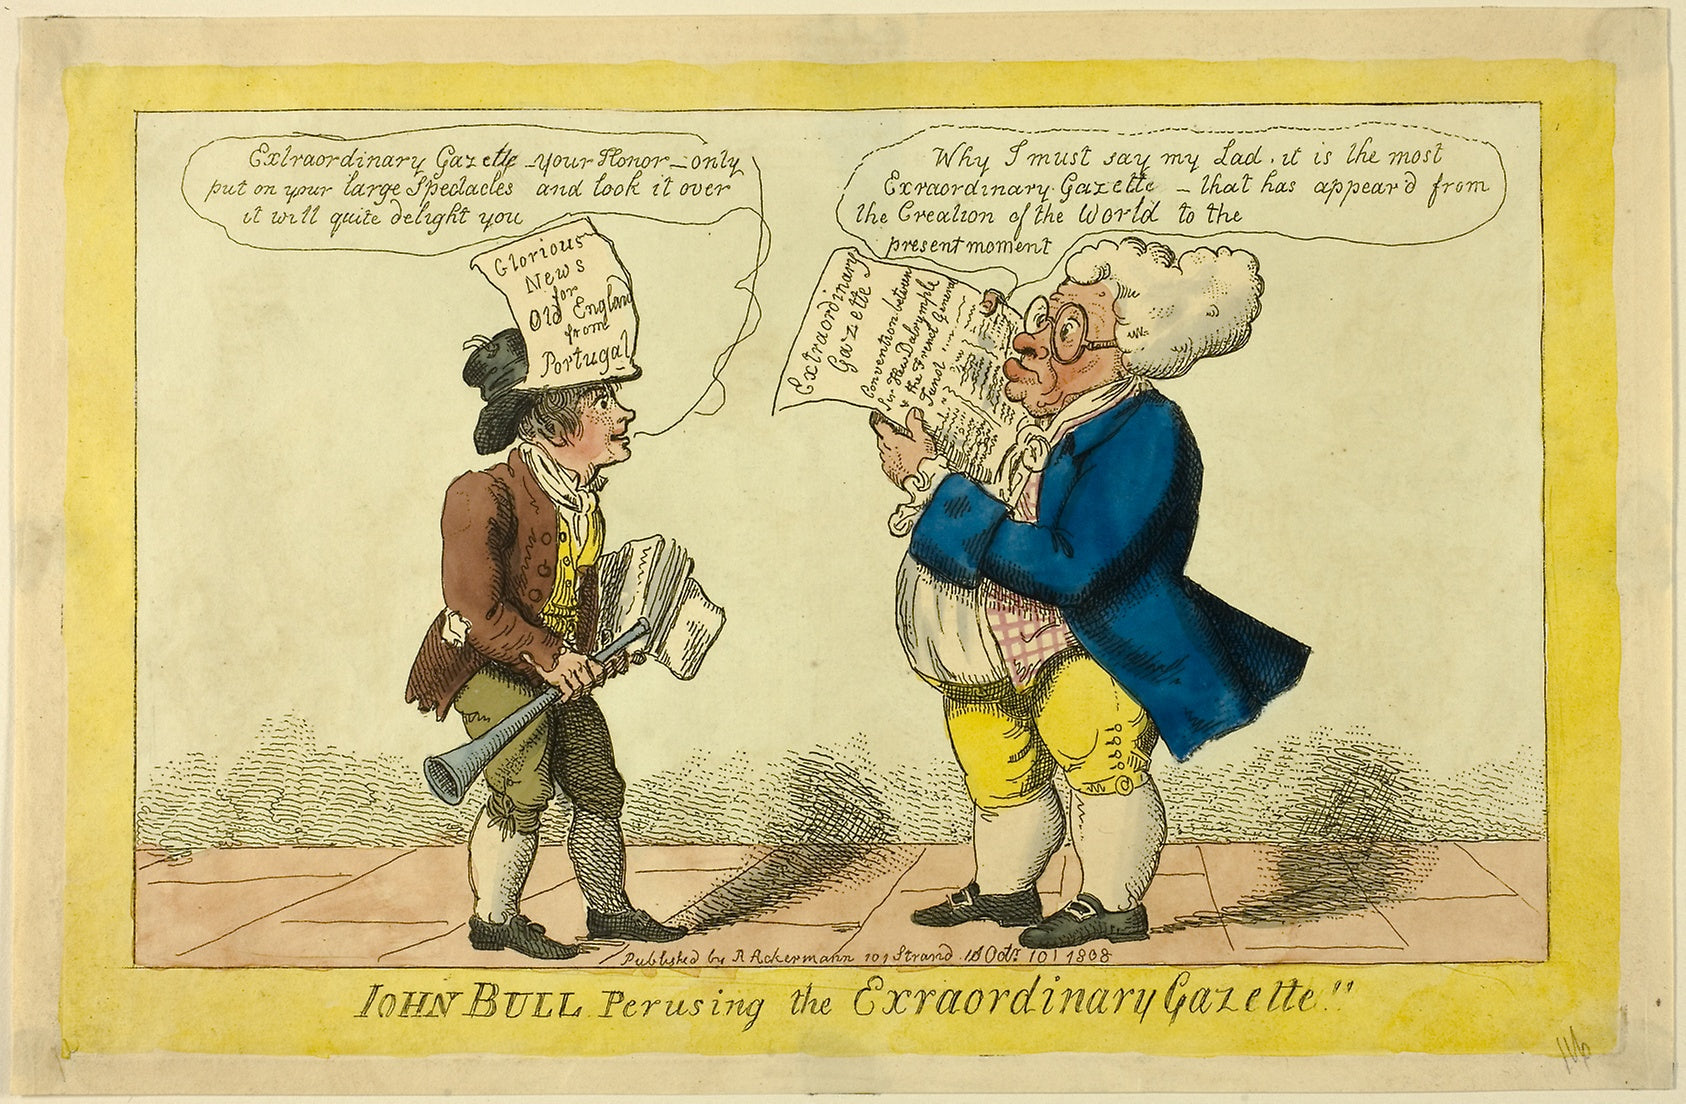 Extraordinary Gazette - your Honor - only
put on your large Spectacles and look it over
it will quite delight you
Why I must say my Lad, it is the most
Exraordinary Gazette - that has appear'd from
the Creation of the World to the
present moment
Glorious
News
for
Old England
from
Portugal
Extraordinary
Gazette
Convention between
Sir Hew Dalrymple
& the French General
Junot
Published by R Ackermann 101 Strand Octr 10 1808
IOHN BULL Perusing the Exraordinary Gazette!!